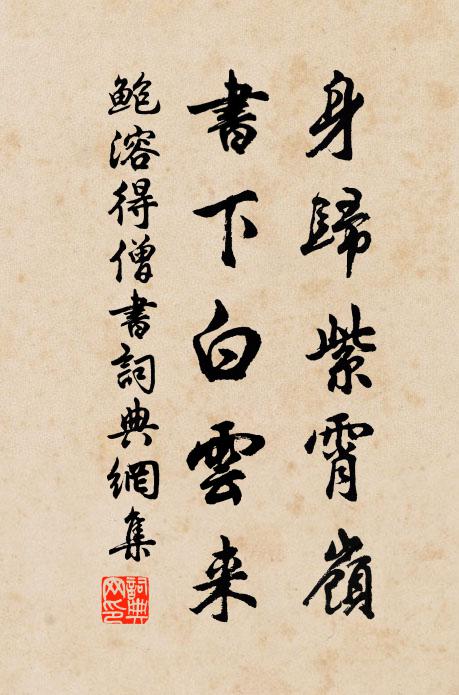 身歸紫霄嶺
書下白雲来
鮑溶得僧書詞典網集
詞典网印